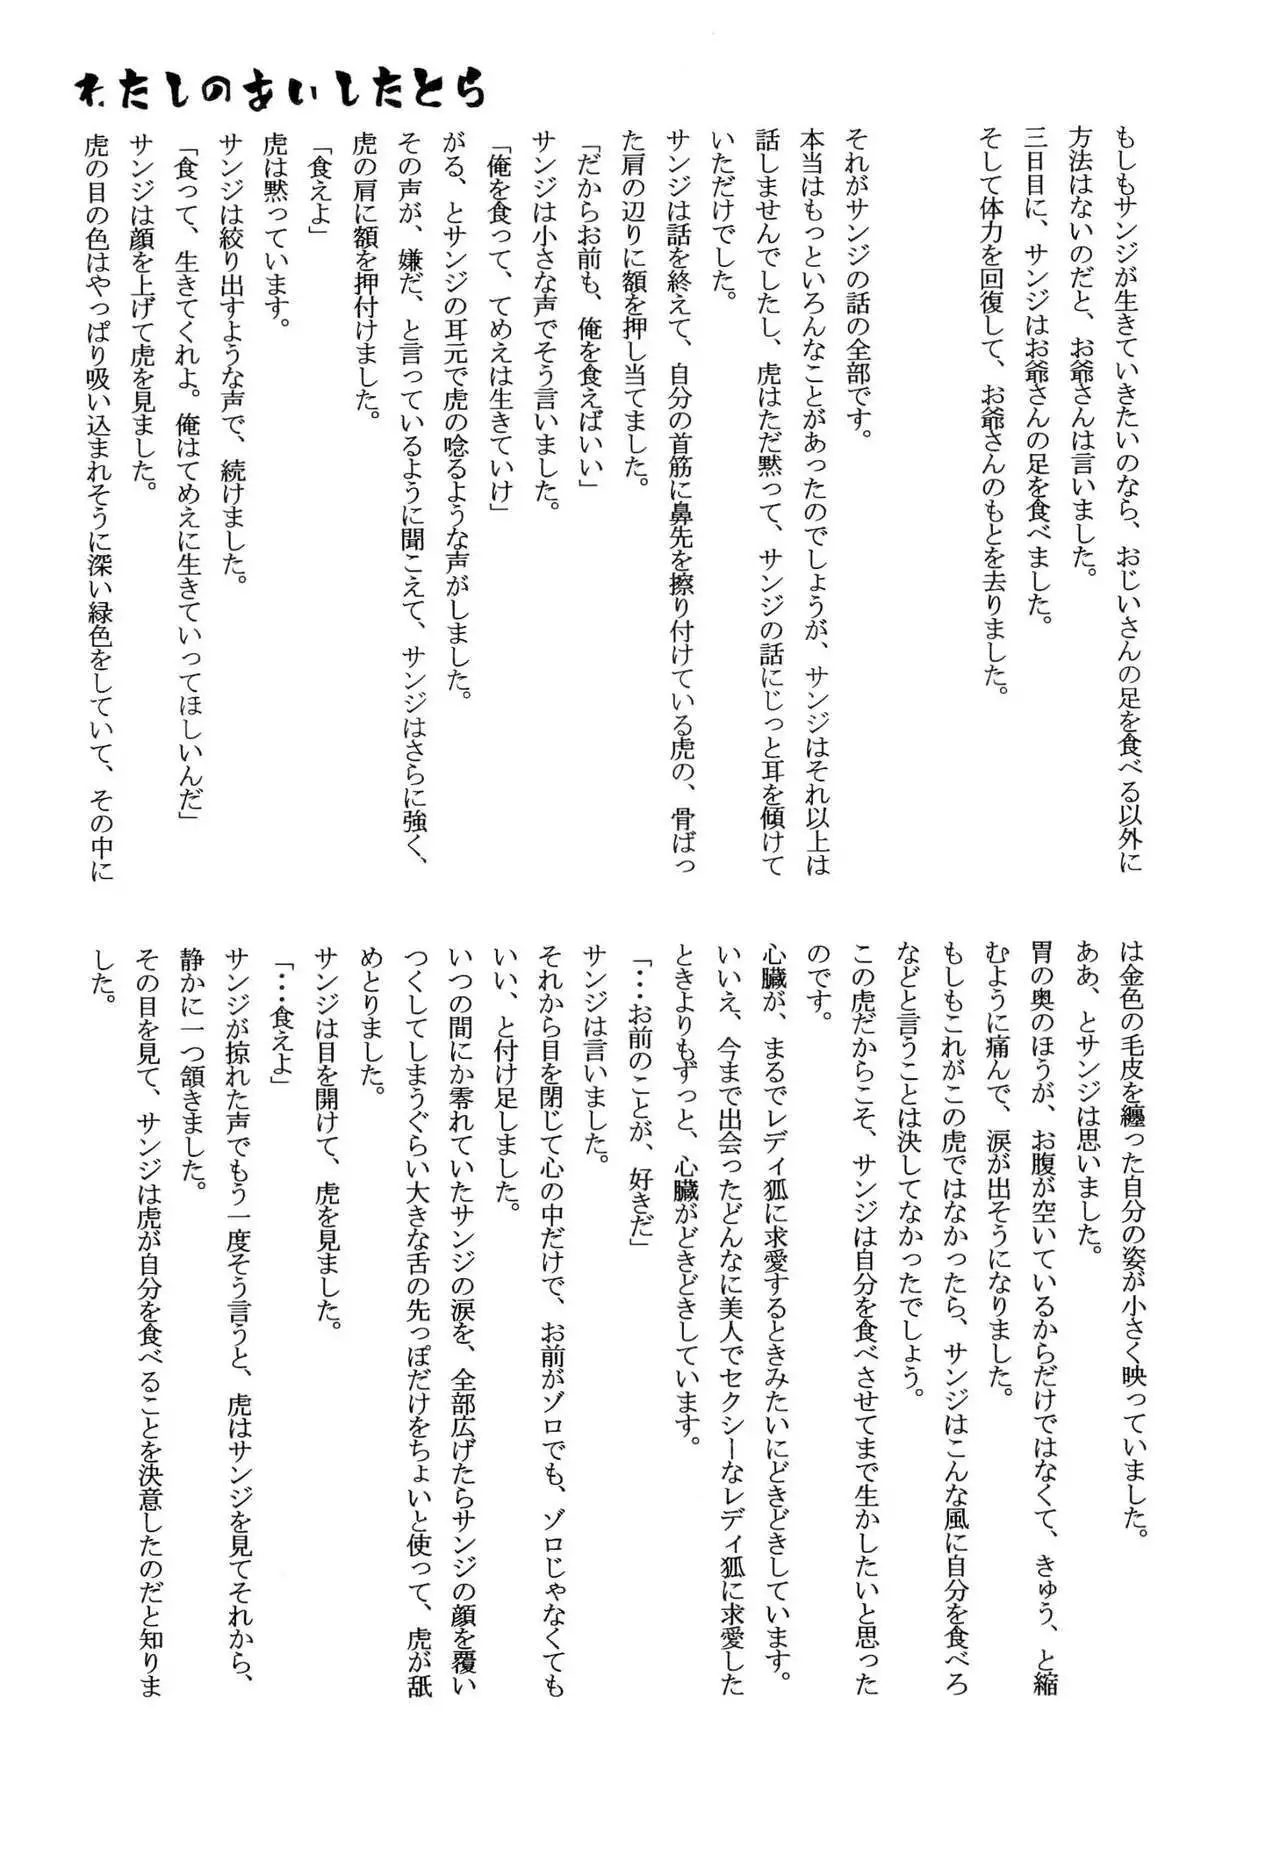 わたしのあいしたとら
もしもサンジが生きていきたいのなら、おじいさんの足を食べる以外に
方法はないのだと、お爺さんは言いました。
三日目に、サンジはお爺さんの足を食べました。
そして体力を回復して、お爺さんのもとを去りました。
それがサンジの話の全部です。
本当はもっといろんなことがあったのでしょうが、サンジはそれ以上は
話しませんでしたし、虎はただ黙って、サンジの話にじっと耳を傾けて
いただけでした。
サンジは話を終えて、自分の首筋に鼻先を擦り付けている虎の、骨ばっ
た肩の辺りに額を押し当てました。
「だからお前も、俺を食えばいい」
サンジは小さな声でそう言いました。
「俺を食って、てめえは生きていけ」
がる、とサンジの耳元で虎の唸るような声がしました。
その声が、嫌だ、と言っているように聞こえて、サンジはさらに強く、
虎の肩に額を押付けました。
「食えよ」
虎は黙っています。
サンジは絞り出すような声で、続けました。
「食って、生きてくれよ。俺はてめえに生きていってほしいんだ」
サンジは顔を上げて虎を見ました。
虎の目の色はやっぱり吸い込まれそうに深い緑色をしていて、その中に
は金色の毛皮を纏った自分の姿が小さく映っていました。
ああ、とサンジは思いました。
胃の奥のほうが、お腹が空いているからだけではなくて、きゅう、と縮
むように痛んで、涙が出そうになりました。
もしもこれがこの虎ではなかったら、サンジはこんな風に自分を食べろ
などと言うことは決してなかったでしょう。
この虎だからこそ、サンジは自分を食べさせてまで生かしたいと思った
のです。
心臓が、まるでレディ狐に求愛するときみたいにどきどきしています。
いいえ、今まで出会ったどんなに美人でセクシーなレディ狐に求愛した
ときよりもずっと、心臓がどきどきしています。
「・・・お前のことが、好きだ」
サンジは言いました。
それから目を閉じて心の中だけで、お前がゾロでも、ゾロじゃなくても
いい、と付け足しました。
いつの間にか零れていたサンジの涙を、全部広げたらサンジの顔を覆い
つくしてしまうぐらい大きな舌の先っぽだけをちょいと使って、虎が舐
めとりました。
サンジは目を開けて、虎を見ました。
「・・・食えよ」
サンジが掠れた声でもう一度そう言うと、虎はサンジを見てそれから、
静かに一つ頷きました。
その目を見て、サンジは虎が自分を食べることを決意したのだと知りま
した。